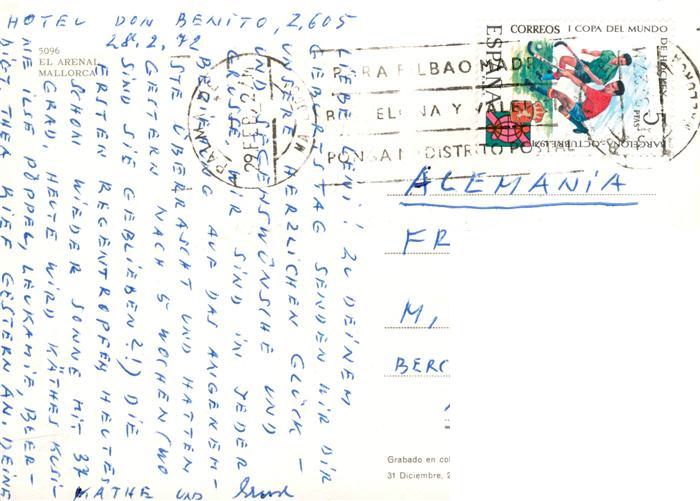 HOTEL DON BENITO, Z.605
28.2.72
LIEBE LENI! ZU DEINEM
GEBURTSTAG SENDEN WIR DIR
UNSERE HERZLICHEN GLÜCK-
UND SEGENSWÜNSCHE UND
GRÜSSE. WIR SIND IN JEDER
BEZIEHUNG AUF DAS ANGENEHM-
STE ÜBERRASCHT UND HATTEN
GESTERN NACH 5 WOCHEN (WO
SIND SIE GEBLIEBEN?!) DIE
ERSTEN REGENTROPFEN, HEUTE
SCHON WIEDER SONNE MIT 37
GRAD, HEUTE WIRD KÄTHES KUSI-
NE ILSE PÖPPEL, LEUKAMIE, BEER-
DIGT, THEA RIEF GESTERN AN. DEINE
KÄTHE UND
5096
EL ARENAL
MALLORCA
CORREOS I COPA DEL MUNDO
DE HOCKEY
ESPAÑA
5 PTAS
BARCELONA-OCTUBRE 1971
PARA BILBAO MADRID
BARCELONA Y VALENCIA
PONGA Nº DISTRITO POSTAL
29 FEB 72
ALEMANIA
FR
M,
BERG
Grabado en col
31 Diciembre, 2